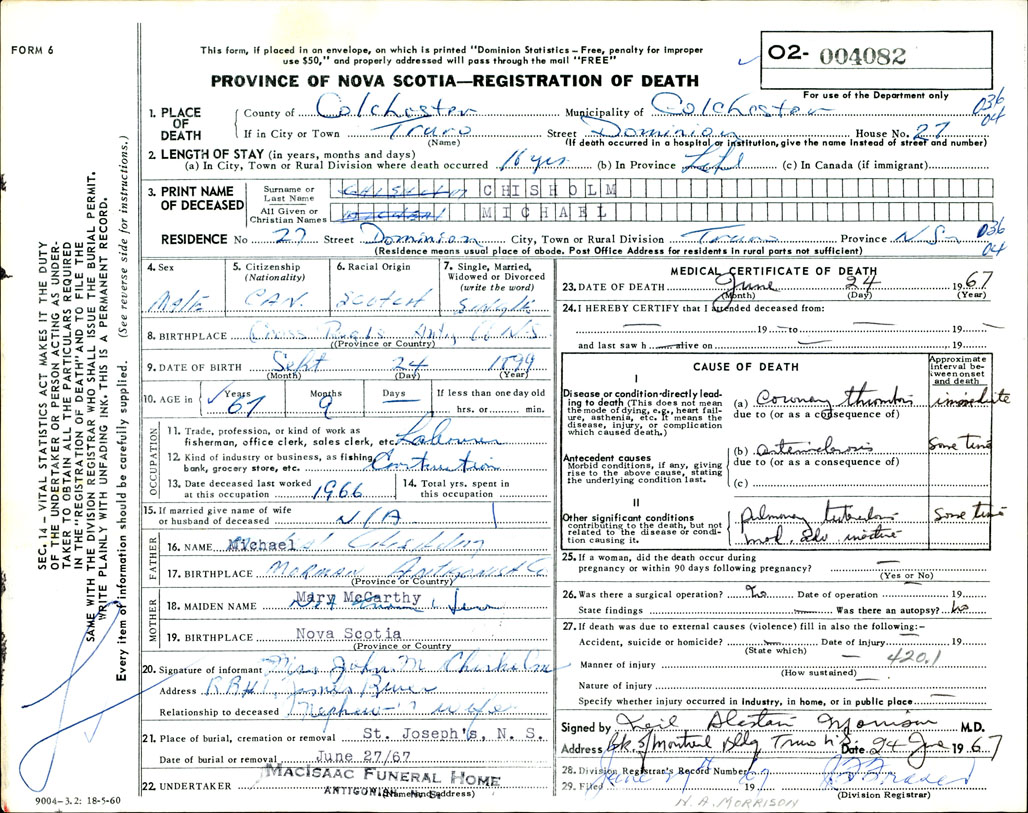 FORM 6
This form, if placed in an envelope, on which is printed "Dominion Statistics – Free, penalty for improper
use $50," and properly addressed will pass through the mail "FREE"
PROVINCE OF NOVA SCOTIA—REGISTRATION OF DEATH
02- 004082
For use of the Department only
036
04
1. PLACE OF DEATH
County of Colchester Municipality of Colchester
If in City or Town Truro Street Dominion House No. 27
(Name) (If death occurred in a hospital or institution, give the name instead of street and number)
2. LENGTH OF STAY (in years, months and days)
(a) In City, Town or Rural Division where death occurred 16 yrs (b) In Province Life (c) In Canada (if immigrant)
3. PRINT NAME OF DECEASED
Surname or Last Name CHISHOLM
All Given or Christian Names MICHAEL
RESIDENCE No 27 Street Dominion City, Town or Rural Division Truro Province N.S. 036 04
(Residence means usual place of abode. Post Office Address for residents in rural parts not sufficient)
4. Sex Male
5. Citizenship (Nationality) CAN.
6. Racial Origin SCOTCH
7. Single, Married, Widowed or Divorced (write the word) Single
8. BIRTHPLACE Cross Roads N.S.
(Province or Country)
9. DATE OF BIRTH Sept 24 1899
(Month) (Day) (Year)
10. AGE in Years 67 Months 9 Days — If less than one day old hrs. or min.
OCCUPATION
11. Trade, profession, or kind of work as fisherman, office clerk, sales clerk, etc. Labourer
12. Kind of industry or business, as fishing, bank, grocery store, etc. Construction
13. Date deceased last worked at this occupation 1966
14. Total yrs. spent in this occupation
15. If married give name of wife or husband of deceased N/A
FATHER
16. NAME Michael Chisholm
17. BIRTHPLACE MORMAN Antigonish Co
(Province or Country)
MOTHER
18. MAIDEN NAME Mary McCarthy
19. BIRTHPLACE Nova Scotia
(Province or Country
20. Signature of informant John M Chisholm
Address R R # 1, James River
Relationship to deceased Nephew's wife
21. Place of burial, cremation or removal St. Joseph's, N. S.
Date of burial or removal June 27/67
22. UNDERTAKER MACISAAC FUNERAL HOME
ANTIGONISH, N. S.
(Name and Address)
9004-3.2: 18-5-60
SEC. 14 – VITAL STATISTICS ACT MAKES IT THE DUTY
OF THE UNDERTAKER OR PERSON ACTING AS UNDER-
TAKER TO OBTAIN ALL THE PARTICULARS REQUIRED
IN THE "REGISTRATION OF DEATH" AND TO FILE THE
SAME WITH THE DIVISION REGISTRAR WHO SHALL ISSUE THE BURIAL PERMIT.
WRITE PLAINLY WITH UNFADING INK. THIS IS A PERMANENT RECORD.
Every item of information should be carefully supplied. (See reverse side for instructions.)
MEDICAL CERTIFICATE OF DEATH
23. DATE OF DEATH June 24 1967
(Month) (Day) (Year)
24. I HEREBY CERTIFY that I attended deceased from:
— 19 — to — 19 —
and last saw h — alive on — 19 —
CAUSE OF DEATH
Approximate interval between onset and death
I
Disease or condition directly leading to death (This does not mean the mode of dying, e.g., heart failure, asthenia, etc. It means the disease, injury, or complication which caused death.)
(a) Coronary thrombosis immediate
due to (or as a consequence of)
Antecedent causes
Morbid conditions, if any, giving rise to the above cause, stating the underlying condition last.
(b) Arteriosclerosis Some time
due to (or as a consequence of)
(c)
II
Other significant conditions contributing to the death, but not related to the disease or condition causing it.
Pulmonary tuberculosis Some time
mod. adv. inactive
25. If a woman, did the death occur during
pregnancy or within 90 days following pregnancy? —
(Yes or No)
26. Was there a surgical operation? No Date of operation 19
State findings — Was there an autopsy? No
27. If death was due to external causes (violence) fill in also the following:–
Accident, suicide or homicide? — Date of Injury — 19
(State which)
Manner of injury — 420.1
(How sustained)
Nature of injury —
Specify whether injury occurred in industry, in home, or in public place —
Signed by Neil Alastair Morrison M.D.
Address Bk of Montreal Bldg Truro N.S. Date 24 June 1967
28. Division Registrar's Record Number
29. Filed June 19 67 Fraser
(Division Registrar)
N. A. MORRISON